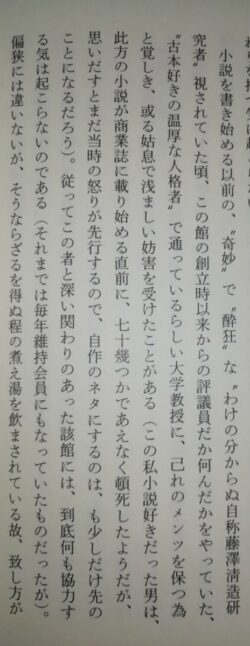 小説を書き始める以前の、〝奇妙〟で〝酔狂〟な〝わけの分からぬ自称藤澤清造研
究者〟視されていた頃、この館の創立時以来からの評議員だか何んだかをやっていた、
〝古本好きの温厚な人格者〟で通っているらしい大学教授に、己れのメンツを保つ為
と覚しき、或る姑息で浅ましい妨害を受けたことがある（この私小説好きだった男は、
此方の小説が商業誌に載り始める直前に、七十幾つかであえなく頓死したようだが、
思いだすとまだ当時の怒りが先行するので、自作のネタにするのは、も少しだけ先の
ことになるだろう）。従ってこの者と深い関わりのあった該館には、到底何も協力す
る気は起こらないのである（それまでは毎年維持会員にもなっていたものだったが）。
偏狭には違いないが、そうならざるを得ぬ程の煮え湯を飲まされている故、致し方が